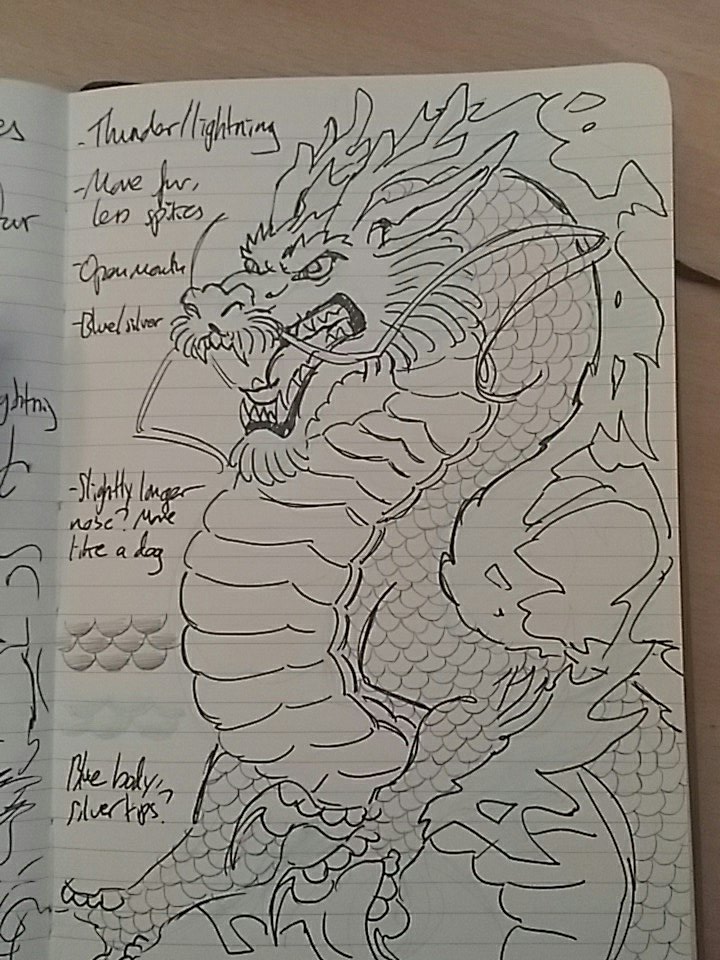 es
- Thunder/lightning
- More fur,
less spikes
fur
- Open mouth
- Blue/silver
ghtning
- Slightly longer
nose? More
like a dog
Blue body,
silver tips?